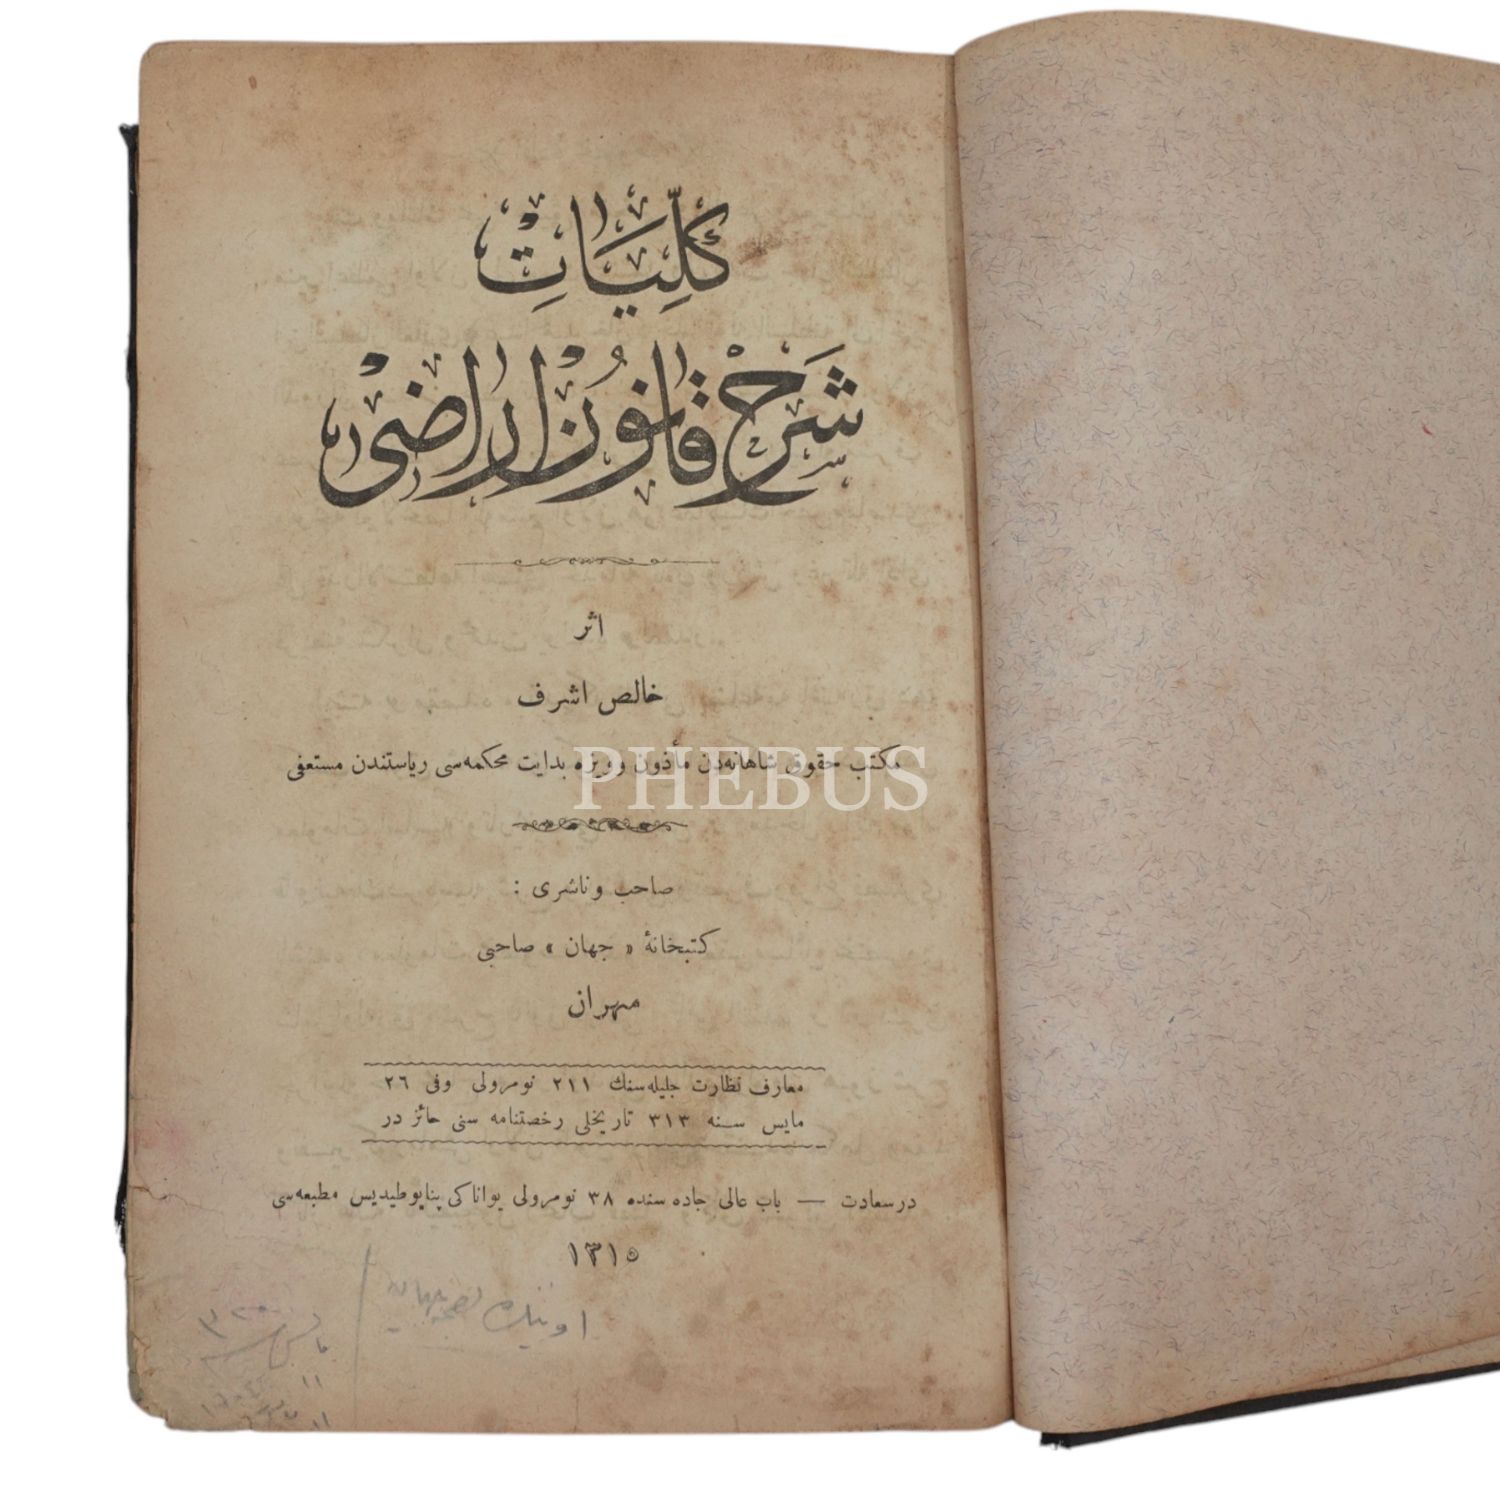 كلّيات
شرح قانون اراضى
اثر
خالص اشرف
مكتب حقوق شاهانه‌دن مأذون وويزه بدايت محكمه‌سى رياستندن مستعفى
PHEBUS
صاحب وناشرى :
كتبخانهٔ « جهان » صاحبى
مهران
معارف نظارت جليله‌سنك ٢١١ نومرولى وفى ٢٦
مايس سنه ٣١٣ تاريخلى رخصتنامه سنى حائز در
درسعادت — باب عالى جاده سنده ٣٨ نومرولى يواناكى پناپوطيديس مطبعه‌سى
١٣١٥